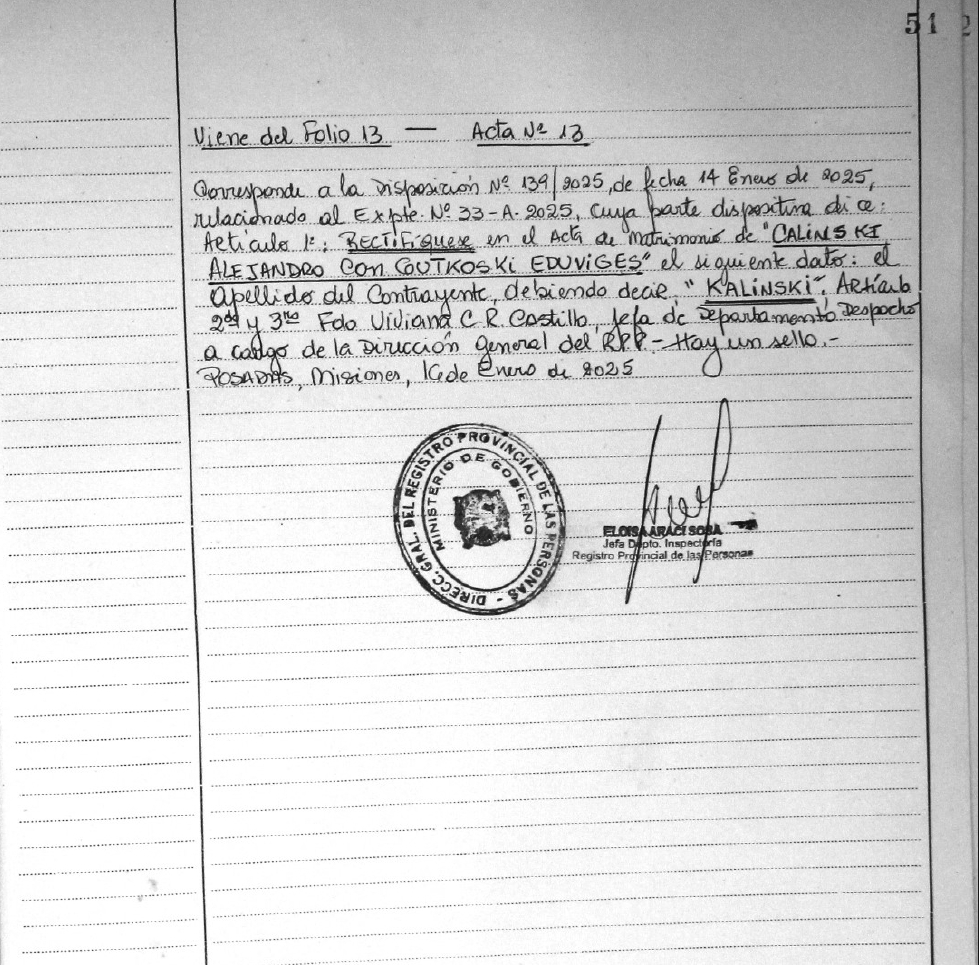 51 2
Viene del Folio 13 — Acta Nº 13
Corresponde a la Disposición Nº 139/2025, de fecha 14 Enero de 2025,
relacionado al Expte. Nº 33-A-2025, cuya parte dispositiva dice:
Artículo 1º: RECTIFíquese en el Acta de Matrimonio de "CALiNSKI
ALEJANDRO CON COUTKOSKi EDUViGES" el siguiente dato: el
apellido del Contrayente, debiendo decir, "KALiNSKI". Artículo
2do y 3ro Fdo Viviana C.R. Castillo, Jefa de Departamento Despacho
a cargo de la Dirección General del RPP.- Hay un sello.-
POSADAS, Misiones, 16 de Enero de 2025
DIRECC. GRAL. DEL REGISTRO PROVINCIAL DE LAS PERSONAS -
MINISTERIO DE GOBIERNO
ELOISA ARACI SOSA
Jefa Dpto. Inspectoría
Registro Provincial de las Personas